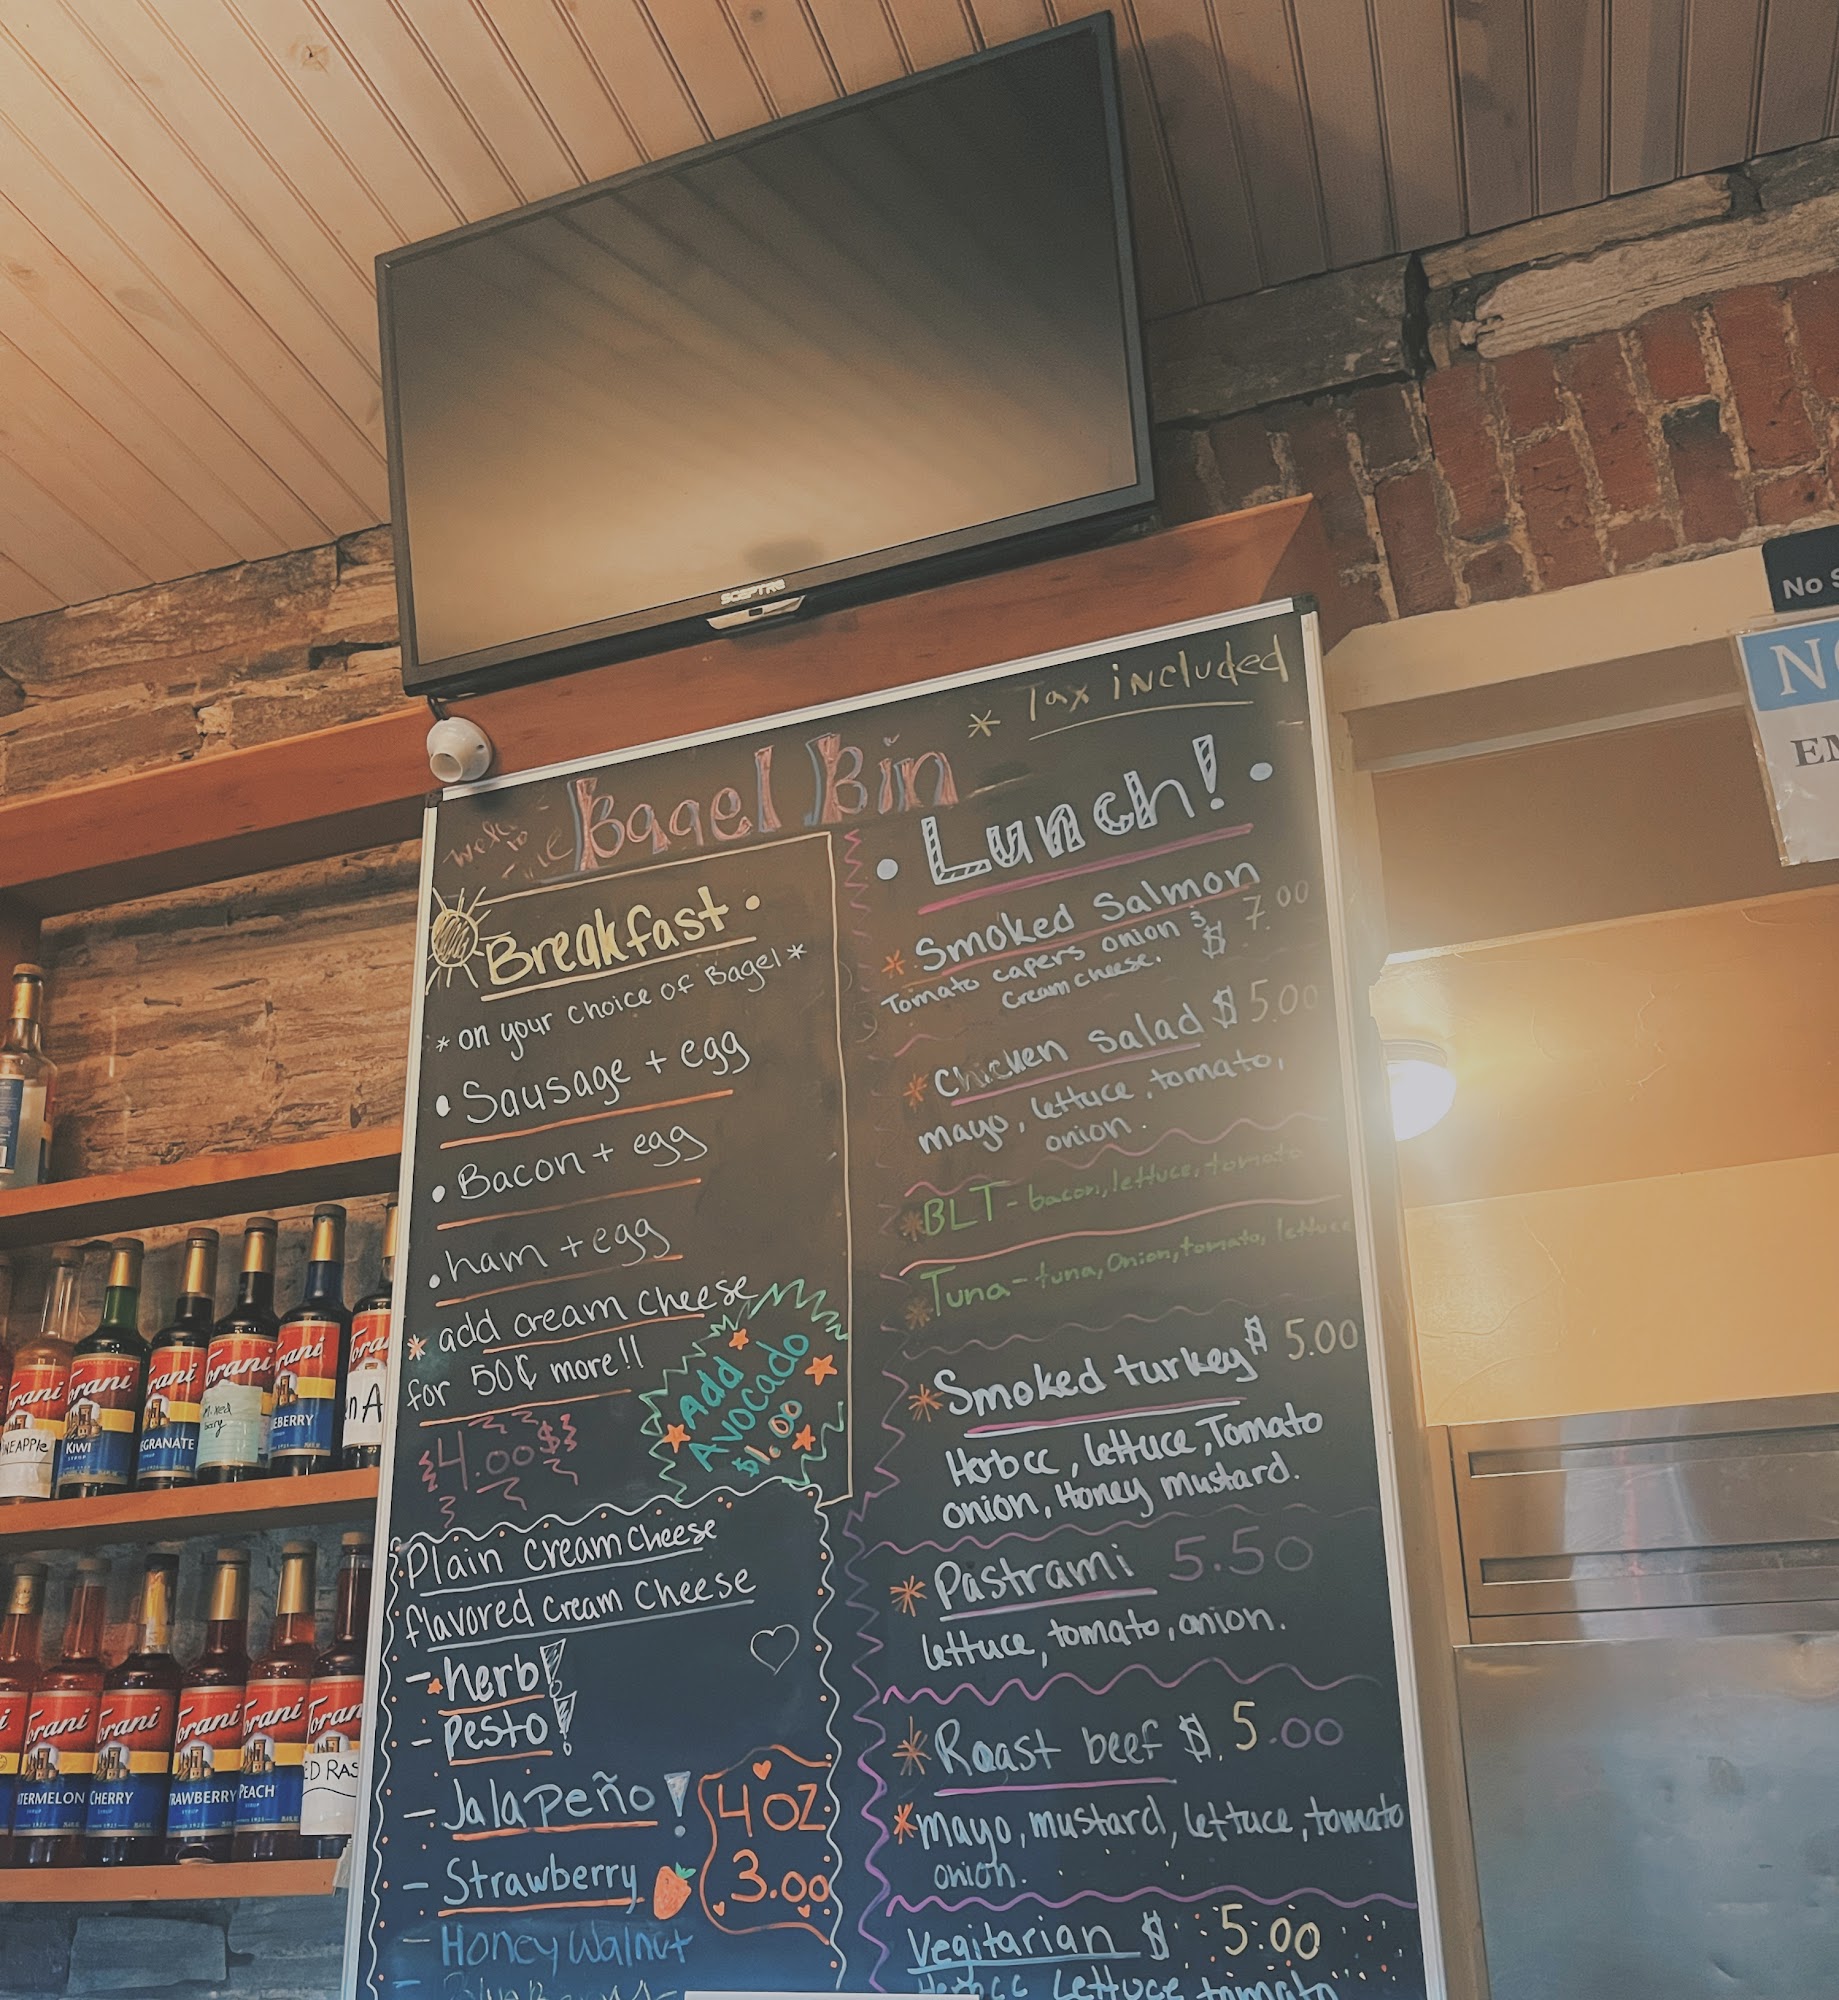 SCEPTRE
No
* Tax included
Bagel Bin
Breakfast
*on your choice of Bagel*
Sausage + egg
Bacon + egg
ham + egg
* add cream cheese
for 50¢ more!!
4.00$
Add
Avocado
$1.00
Plain creamcheese
flavored cream cheese
- herb!
- pesto!
- Jalapeño!
- Strawberry
- Honey Walnut
4 oz
3.00
Lunch!
* Smoked Salmon
Tomato capers onion $ 7.00
Cream cheese.
* Chicken Salad $ 5.00
mayo, lettuce, tomato,
onion.
* BLT - bacon, lettuce, tomato
* Tuna - tuna, Onion, tomato, lettuce
* Smoked turkey $ 5.00
Herbcc, lettuce, Tomato
onion, Honey mustard.
* Pastrami 5.50
lettuce, tomato, onion.
* Roast beef $. 5.00
* mayo, mustard, lettuce, tomato
onion.
Vegitarian $ 5.00
Herbcc Lettuce tomato
Torani
KIWI
SYRUP
Torani
Torani
Mixed
berry
Torani
Torani
Torani
Torani
CHERRY
SYRUP
Torani
Torani
PEACH
Torani